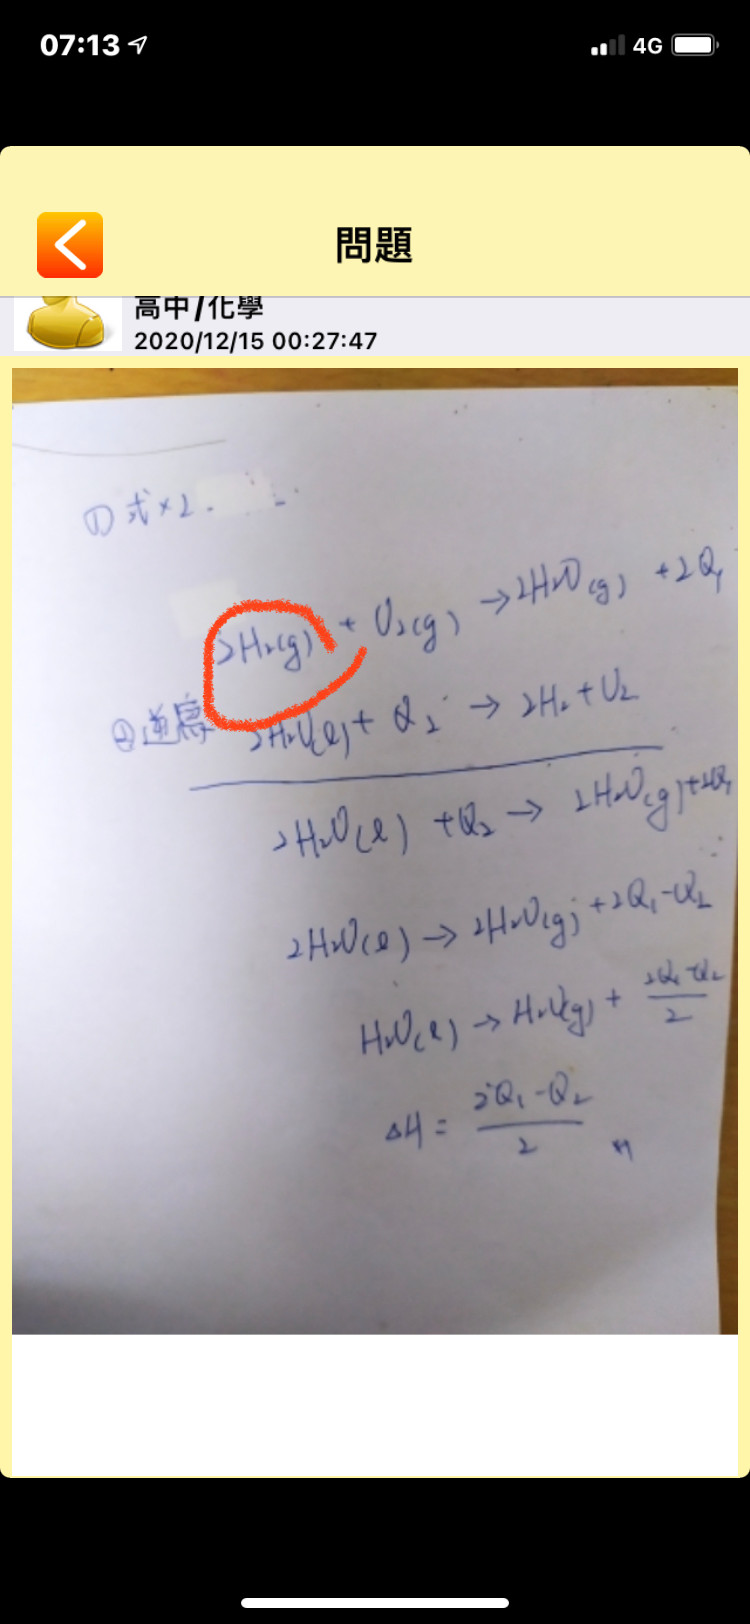 07:13
4G
問題
高中/化學
2020/12/15 00:27:47
① 式×2.
2H₂(g) + O₂(g) → 2H₂O(g) + 2Q₁
②逆寫 2H₂O(l) + Q₂ → 2H₂ + O₂
2H₂O(l) + Q₂ → 2H₂O(g) + 2Q₁
2H₂O(l) → 2H₂O(g) + 2Q₁-Q₂
H₂O(l) → H₂O(g) + 2Q₁-Q₂ / 2
ΔH = 2Q₁-Q₂ / 2